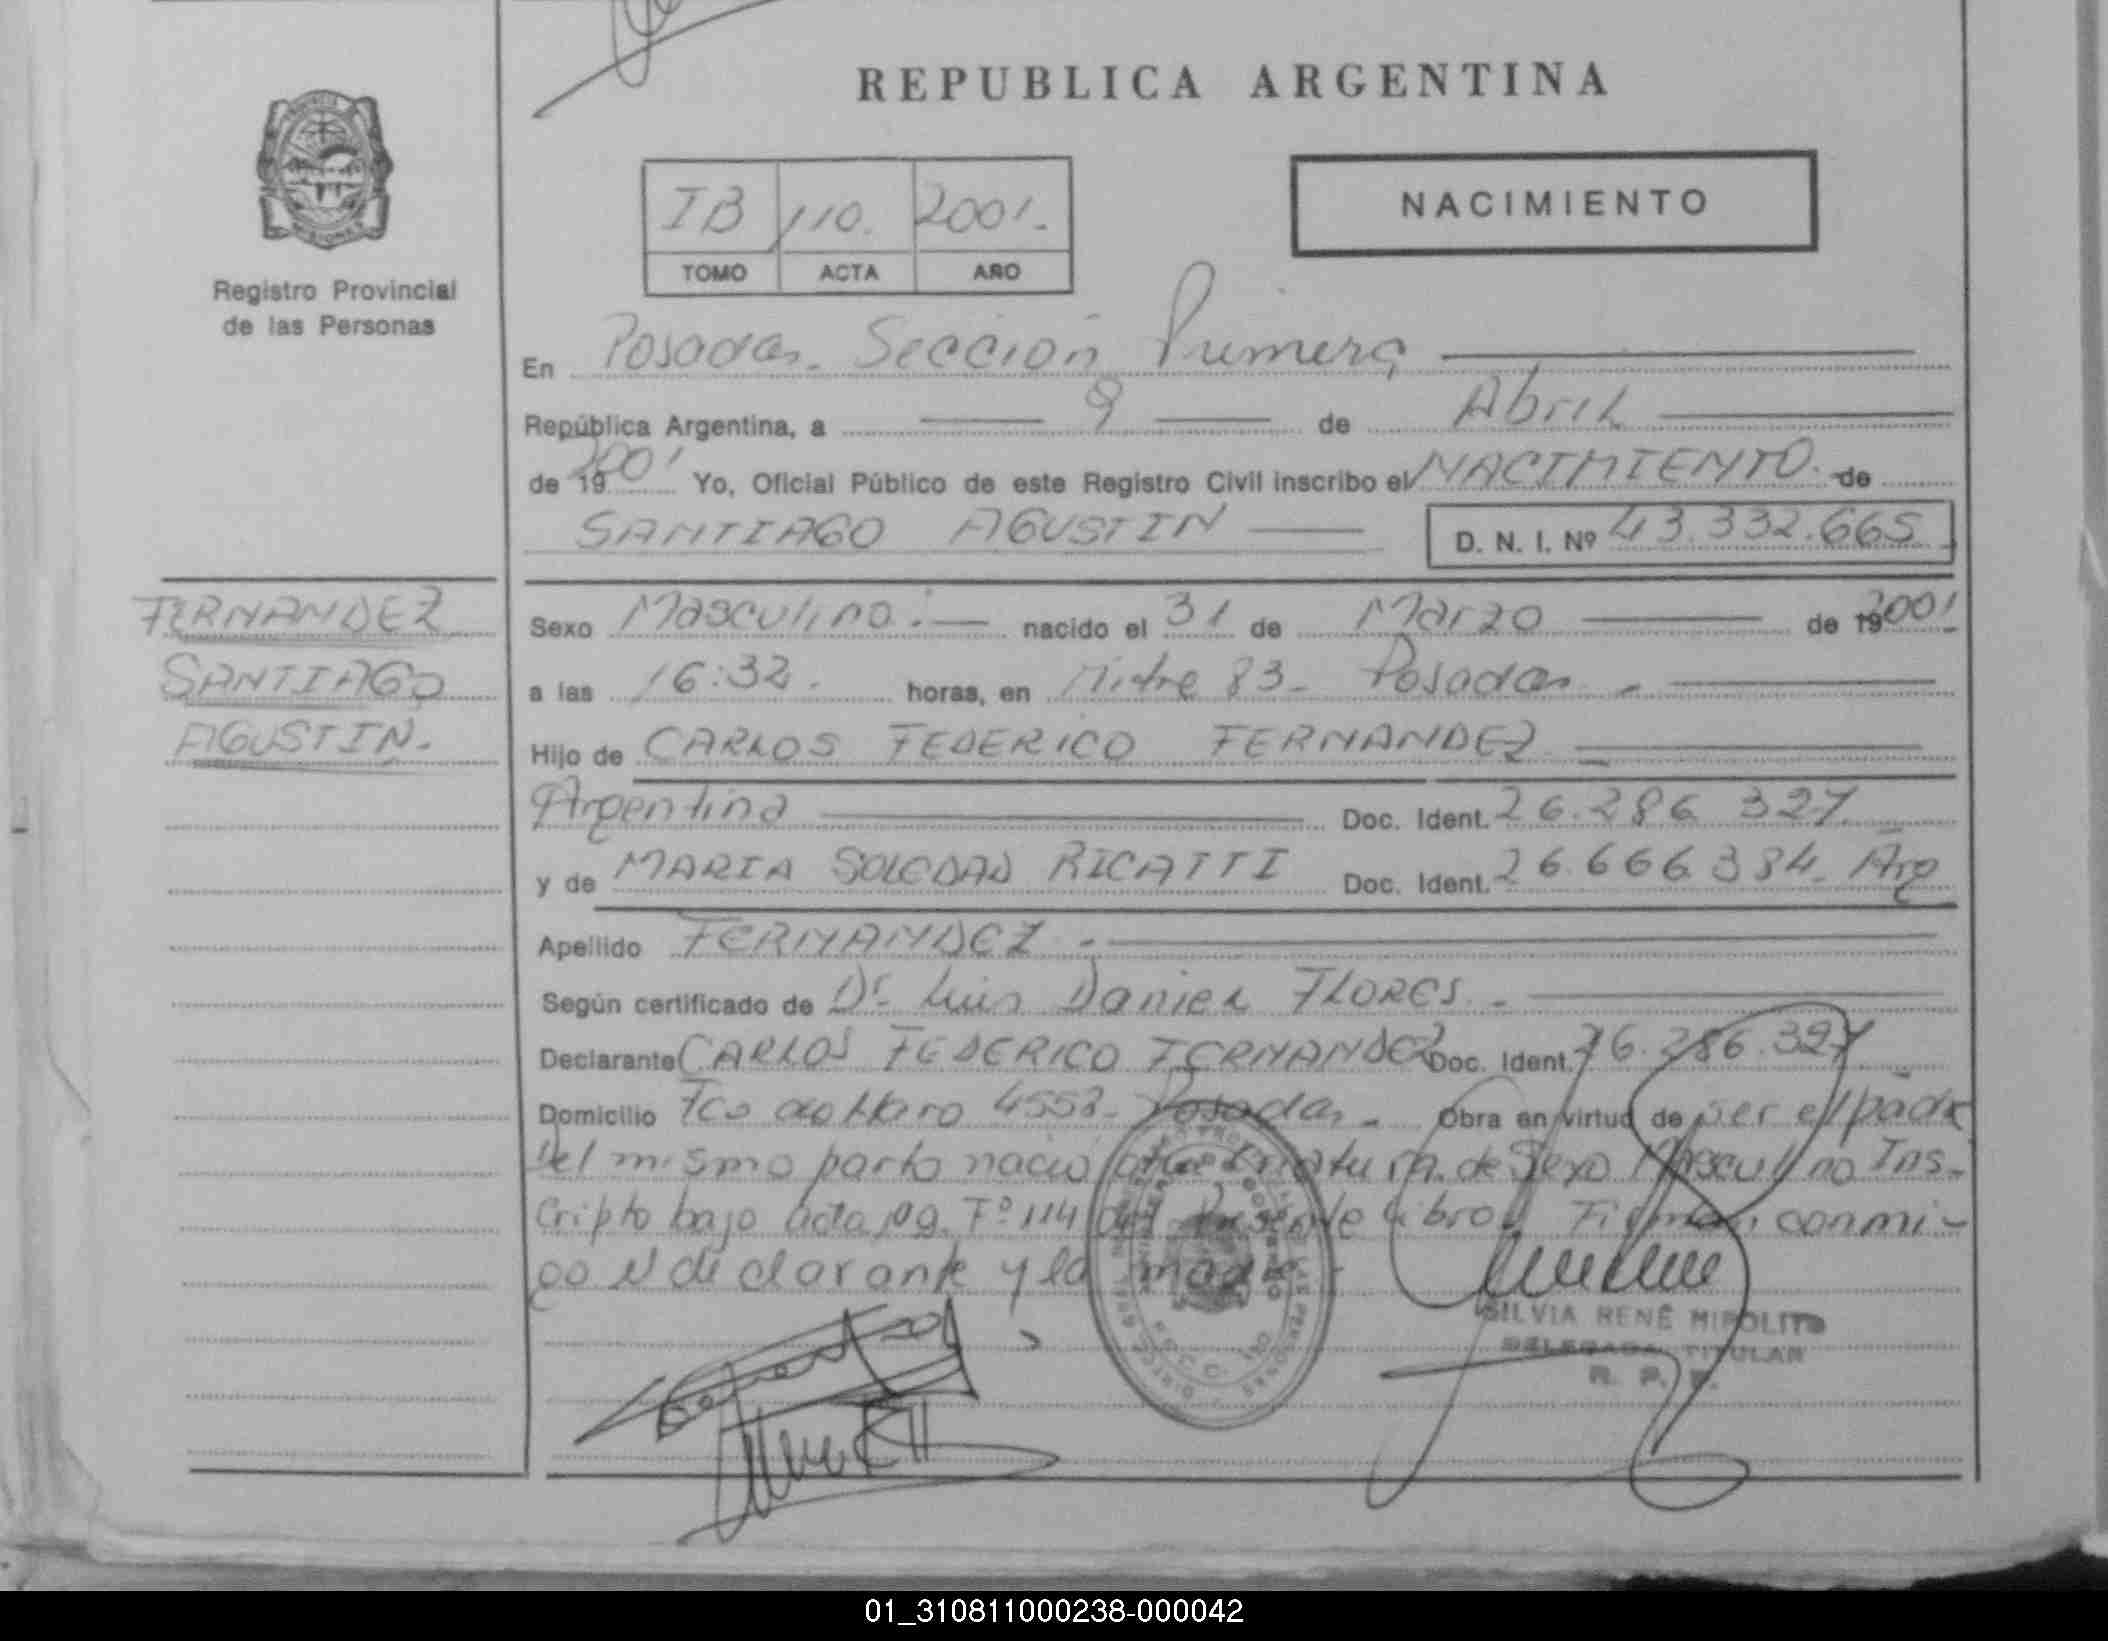 REPUBLICA ARGENTINA
NACIMIENTO
IB 110. 2001.
TOMO ACTA AÑO
Registro Provincial
de las Personas
En Posadas. Sección Primera
República Argentina, a 9 de Abril
de 19 2001 Yo, Oficial Público de este Registro Civil inscribo el NACIMIENTO. de
SANTIAGO AGUSTIN D. N. I. Nº 43.332.665
FERNANDEZ
SANTIAGO
AGUSTIN.
Sexo Masculino. nacido el 31 de Marzo de 19 2001
a las 16:32. horas, en Mitre 83 - Posadas -
Hijo de CARLOS FEDERICO FERNANDEZ
Argentina Doc. Ident. 26.286 327
y de MARIA SOLEDAD RICATTI Doc. Ident. 26.666 384. Arg
Apellido FERNANDEZ -
Según certificado de Dr. Luis Daniel FLORES. -
Declarante CARLOS FEDERICO FERNANDEZ Doc. Ident. 26.286.327
Domicilio Fco de Haro 4558 - Posadas - Obra en virtud de ser el padre
Del mismo parto nació otra criatura de Sexo Masculino Ins-
cripto bajo acta 109. Fº 114 del Presente libro. Firman conmi-
go el declarante y la madre.
SILVIA RENÉ HIPOLITO
DELEGADA TITULAR
R. P. P.
01_310811000238-000042